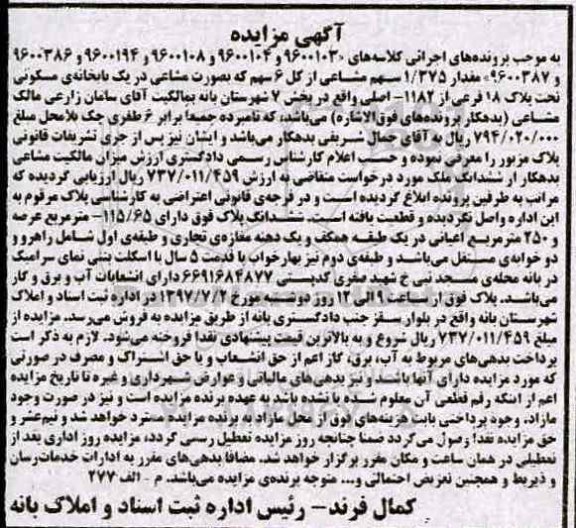 آگهی مزایده
به موجب پرونده‌های اجرائی کلاسه‌های «۹۶۰۰۱۰۳ و ۹۶۰۰۱۰۴ و ۹۶۰۰۱۰۸ و ۹۶۰۰۱۹۴ و ۹۶۰۰۳۸۶
و ۹۶۰۰۳۸۷» مقدار ۱/۳۷۵ سهم مشاعی از کل ۶ سهم که بصورت مشاعی در یک بابخانه‌ی مسکونی
تحت پلاک ۱۸ فرعی از ۱۱۸۲- اصلی واقع در بخش ۷ شهرستان بانه بمالکیت آقای سامان زارعی مالک
مشاعی (بدهکار پرونده‌های فوق‌الاشاره) می‌باشد، که نامبرده جمیعا برابر ۶ طغری چک بلامحل مبلغ
۷۹۴/۰۲۰/۰۰۰ ریال به آقای جمال شریفی بدهکار می‌باشد و ایشان نیز پس از جری تشریفات قانونی
پلاک مزبور را معرفی نموده و حسب اعلام کارشناس رسمی دادگستری ارزش میزان مالکیت مشاعی
بدهکار از ششدانگ ملک مورد درخواست متقاضی به ارزش ۷۳۷/۰۱۱/۴۵۹ ریال ارزیابی گردیده که
مراتب به طرفین پرونده ابلاغ گردیده است و در فرجه‌ی قانونی اعتراضی به کارشناسی پلاک مرقوم به
این اداره واصل نگردیده و قطعیت یافته است. ششدانگ پلاک فوق دارای ۱۱۵/۶۵- مترمربع عرصه
و ۲۵۰ مترمربع اعیانی در یک طبقه همکف و یک دهنه مغازه‌ی تجاری و طبقه‌ی اول شامل راهرو و
دو خوابه‌ی مستقل می‌باشد و طبقه‌ی دوم نیز بهارخواب با قدمت ۵ سال با اسکلت بتنی نمای سرامیک
در بانه محله‌ی مسجد نبی خ شهید صفری کدپستی ۶۶۹۱۶۸۴۸۷۷ دارای انشعابات آب و برق و گاز
می‌باشد. پلاک فوق از ساعت ۹ الی ۱۲ روز دوشنبه مورخ ۱۳۹۷/۷/۲ در اداره ثبت اسناد و املاک
شهرستان بانه واقع در بلوار سقز جنب دادگستری بانه از طریق مزایده به فروش می‌رسد. مزایده از
مبلغ ۷۳۷/۰۱۱/۴۵۹ ریال شروع و به بالاترین قیمت پیشنهادی نقدا فروخته می‌شود. لازم به ذکر است
پرداخت بدهی‌های مربوط به آب، برق، گاز اعم از حق انشعاب و یا حق اشتراک و مصرف در صورتی
که مورد مزایده دارای آنها باشند و نیز بدهی‌های مالیاتی و عوارض شهرداری و غیره تا تاریخ مزایده
اعم از اینکه رقم قطعی آن معلوم شده یا نشده باشد به عهده برنده مزایده است و نیز در صورت وجود
مازاد، وجوه پرداختی بابت هزینه‌های فوق از محل مازاد به برنده مزایده مسترد خواهد شد و نیم‌عشر و
حق مزایده نقدا وصول می‌گردد ضمنا چنانچه روز مزایده تعطیل رسمی گردد، مزایده روز اداری بعد از
تعطیلی در همان ساعت و مکان مقرر برگزار خواهد شد. مضافا بدهی‌های مقرر به ادارات خدمات‌رسان
و ذیربط و همچنین تعریض احتمالی و... متوجه برنده‌ی مزایده می‌باشد. م - الف ۲۷۷
کمال فرند- رئیس اداره ثبت اسناد و املاک بانه